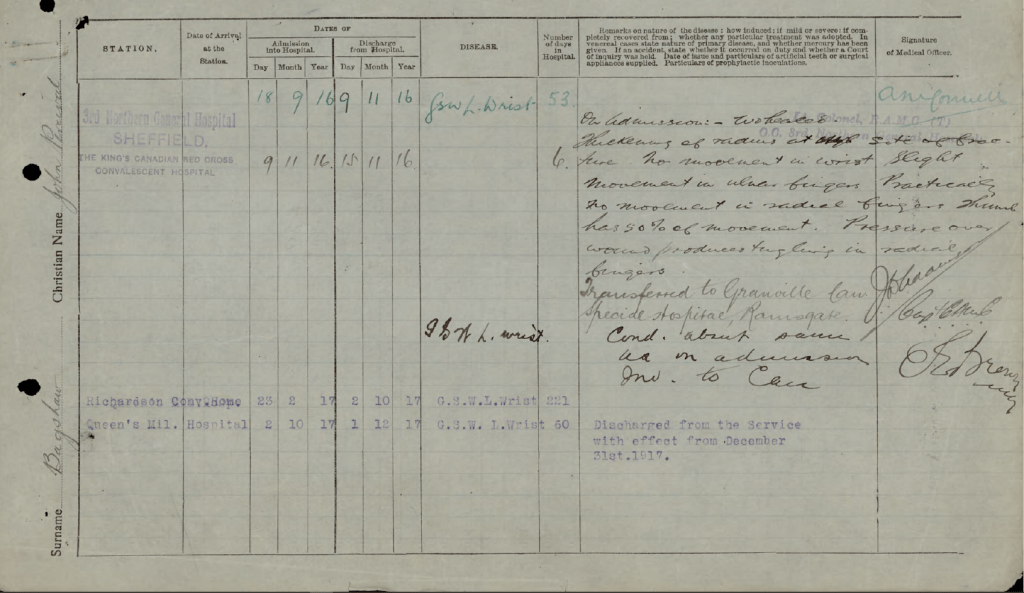 STATION.
Date of Arrival at the Station.
DATES OF
Admission into Hospital.
Discharge from Hospital.
Day Month Year Day Month Year
DISEASE.
Number of days in Hospital.
Remarks on nature of the disease: how induced; if mild or severe: if com-
pletely recovered from; whether any particular treatment was adopted. In
venereal cases state nature of primary disease, and whether mercury has been
given. If an accident, state whether it occurred on duty and whether a Court
of inquiry was held. Date of issue and particulars of artificial teeth or surgical
appliances supplied. Particulars of prophylactic inoculations.
Signature of Medical Officer.
18 9 16 9 11 16 GSW L. Wrist 53.
3rd Northern General Hospital
SHEFFIELD.
Colonel, R.A.M.C. (T)
O.C. 3rd Northern General Hospital
THE KING'S CANADIAN RED CROSS
CONVALESCENT HOSPITAL
9 11 16. 15 11 16. 6.
On admission:-
thickening of radius at site of frac-
ture. No movement in wrist Slight
movement in ulnar fingers Practically
no movement in radial fingers Thumb
has 50% of movement. Pressure over
wound produces tingling in radial
fingers.
Transferred to Granville Can
Special Hospital, Ramsgate.
Capt
G S W L. wrist.
Cond. about same
as on admission
Inv. to Can
Brown
Richardson Conv.Home 23 2 17 2 10 17 G.S.W.L.Wrist 221
Queen's Mil. Hospital 2 10 17 1 12 17 G.S.W. L.Wrist 60 Discharged from the Service
with effect from December
31st.1917.
Christian Name John
Surname Bagshaw